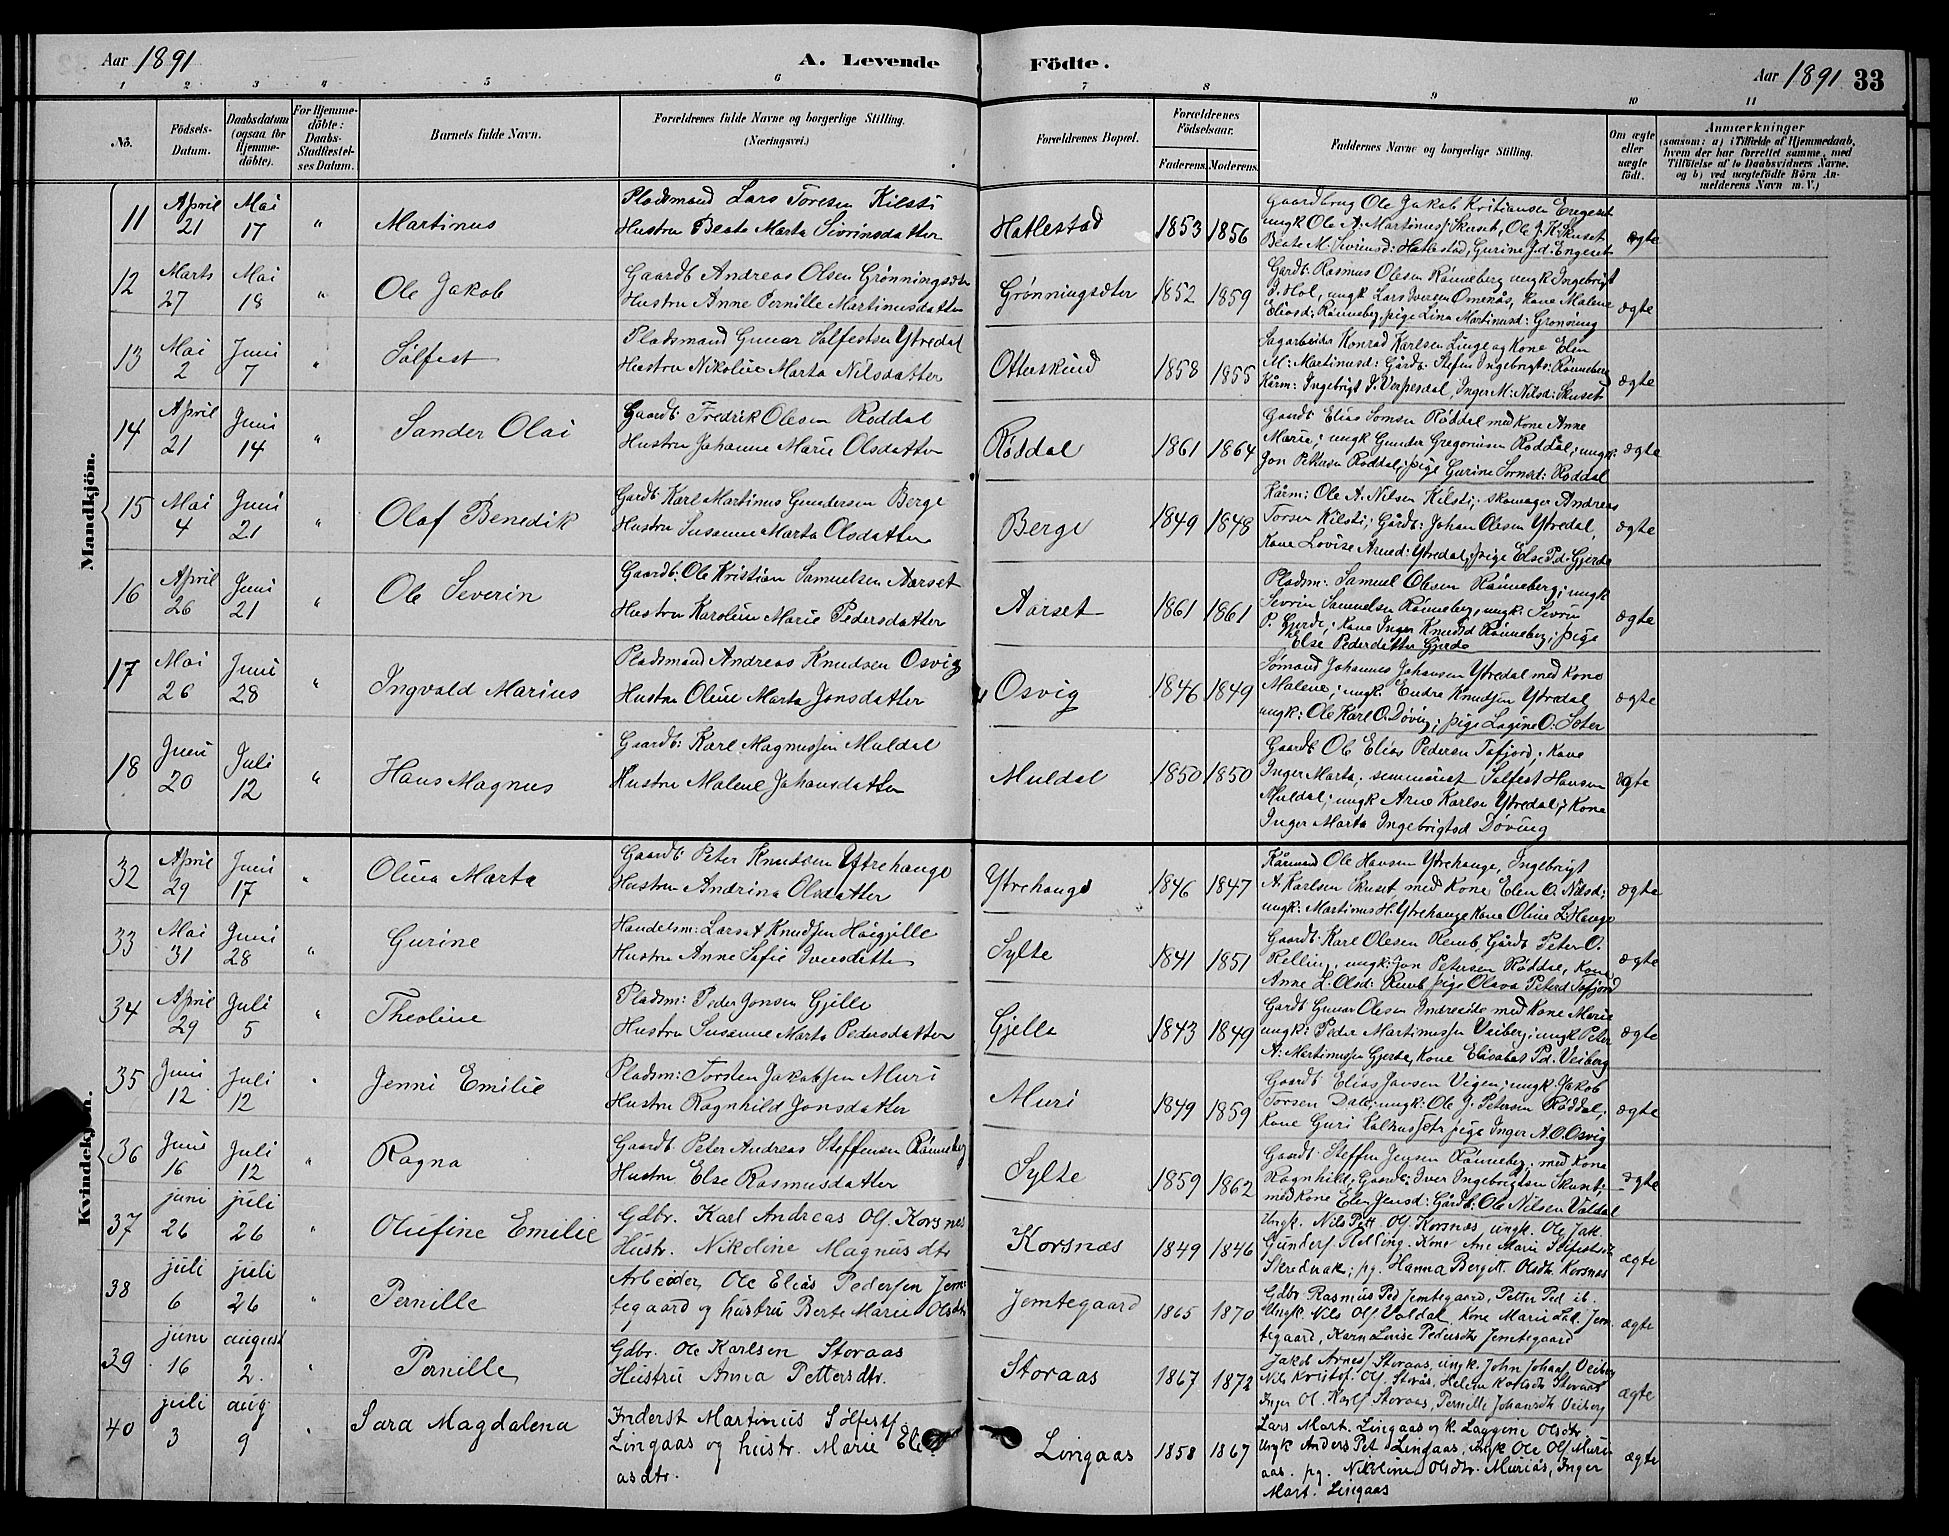 Aar 1891
A. Levende
Födte.
Aar 1891
33
1 2 3 4 5 6 7 8 9 10 11
No.
Födsels-
Datum.
Daabsdatum
(ogsaa for
Hjemme-
döbte).
For Hjemme-
döbte:
Daabs-
Stadfæstel-
ses Datum.
Barnets fulde Navn.
Forældrenes fulde Navne og borgerlige Stilling.
(Næringsvei.)
Forældrenes Bopæl.
Forældrenes
Födselsaar.
Faderens. Moderens.
Faddernes Navne og borgerlige Stilling.
Om ægte
eller
uægte
født.
Anmærkninger
(saasom: a) i Tilfælde af Hjemmedaab,
hvem der har forrettet samme, med
Tilföielse af to Daabsvidners Navne,
og b) ved uægtefödte Börn An-
melderens Navn m. V.)
Mandkjön.
11 April 21 Mai 17 " Martinus
Pladsmand Lars Toresen Kilsti
Hustru Beate Marta Sivrinsdatter
Hatlestad 1853 1856
Gaardbrug Ole Jakob Kristiansen Engeset
ungk Ole A. Martinuss: Skuset, Ole J. K. Skuset
Beate M. Sivrinsd: Hatlestad, Gurine J.d. Engeset
ægte
12 Marts 27 Mai 18 " Ole Jakob
Gaardb Andreas Olsen Grønningsæter
Hustru Anne Pernille Martinusdatter
Grønningsæter 1852 1859
Gardb: Rasmus Olesen Rønneberg ungk Ingebrigt
J. Hol, ungk Lars Iversen Omenås, Kone Malene
Eliasd: Rønneberg, pige Lina Martinusd: Grønning
ægte
13 Mai 2 Juni 7 " Sølfest
Pladsmand Gunar Sølfestsen Ytredal
Hustru Nikoline Marta Nilsdatter
Otterskred 1858 1855
Sagarbeider Konrad Karlsen Linge og Kone Elen
M: Martinusd: Gårdb: Stefen Ingebrigts: Rønneberg
Kårm: Ingebrigt I. Verpesdal, Inger M: Nilsd: Skuset
ægte
14 April 21 Juni 14 " Sander Olai
Gaardb: Fredrik Olesen Røddal
Hustru Johanne Marie Olsdatter
Røddal 1861 1864
Gaardb Elias Jonsen Røddal med Kone Anne
Marie; ungk Gunder Gregoriusen Røddal; ungk
Jon Petersen Røddal; pige Gurine Jonsd: Røddal
ægte
15 Mai 4 Juni 21 " Olaf Benedik
Gardb: Karl Martinus Gundersen Berge
Hustru Susanne Marta Olsdatter
Berge 1849 1848
Kårm: Ole A. Nilsen Kilsti; skomager Andreas
Torsen Kilsti; Gårdb: Johan Olesen Ytredal,
Kone Lovise Arned: Ytredal, pige Else P.d: Gjerde
ægte
16 April 26 Juni 21 " Ole Severin
Gaardb: Ole Kristian Samuelsen Aarset
Hustru Karoline Marie Pedersdatter
Aarset 1861 1861
Pladsm: Samuel Olesen Rønneberg; ungk
Sevrin Samuelsen Rønneberg, ungk: Sevrin
P. Gjerde, Kone Inger Knudsd Rønneberg; pige
Else Pedersdatter Gjerde
ægte
17 Mai 26 Juni 28 " Ingvald Marius
Pladsmand Andreas Knudsen Osvig
Hustru Oline Marta Jonsdatter
Osvig 1846 1849
Sømand Johannes Johansen Ytredal med Kone
Malene; ungk: Endre Knudsen Ytredal
ungk: Ole Karl O. Døving; pige Lagine O. Sæter
ægte
18 Juni 20 Juli 12 " Hans Magnus
Gaardb: Karl Magnussen Muldal
Hustru Malene Johansdatter
Muldal 1850 1850
Gaardb Ole Elias Pedersen Tafjord; Kone
Inger Marta; seminarist Sølfest Hansen
Muldal; ungk Arne Karlsen Ytredal; Kone
Inger Marta Ingebrigtsd Døving
ægte
Kvindekjön.
32 April 29 Juni 17 " Olina Marta
Gaardb: Peter Knudsen Ytrehange
Hustru Andrina Olsdatter
Ytrehange 1846 1847
Kårmand Ole Hansen Ytrehange, Ingebrigt
A. Karlsen Skuset med Kone Elen O. Nilsd:
ungk: Martinus H. Ytrehange Kone Oline L. Hange
ægte
33 Mai 31 Juni 28 " Gurine
Handelsm: Larsat Knudsen Høigjelle
Hustru Anne Sofie Iversdatte
Sylte 1841 1851
Gaardb: Karl Olesen Remb, Gårdb Peter O.
Relling, ungk: Jon Petersen Røddal, Kone
Anne L. Olsd: Remb pige Olava Petersd Tafjord
ægte
34 April 29 Juli 5 " Theoline
Pladsm: Peder Jonsen Gjelle
Hustru Susanne Marta Pedersdatter
Gjelle 1843 1849
Gardb Gunar Olesen Indreeide med Kone Marie
ungk: Peder Martinussen Veiberg; ungk Peter
A: Martinussen Gjerde, Kone Elisabet P.d. Veiberg
ægte
35 Juni 12 Juli 12 " Jenni Emilie
Pladsm: Torsten Jakobsen Muri
Hustru Ragnhild Jonsdatter
Muri 1849 1859
Gaardb Elias Jonsen Vigen; ungk: Jakob
Torsen Dale; ungk: Ole J. Petersen Røddal;
Kone Guri Kalhussetr pige Inger A. O. Osvig
ægte
36 Juni 16 Juli 12 " Ragna
Gaardb: Peter Andreas Steffensen Rønneberg
Hustru Else Rasmusdatter
Sylte 1859 1862
Gaardb: Steffen Jensen Rønneberg, med Kone
Ragnhild, Gaardb: Iver Ingebrigtsen Skuset;
med Kone Elen Jensd: Gårdb: Ole Nilsen Valdal
ægte
37 juni 26 juli 26 " Olufine Emilie
Gdbr. Karl Andreas Ols. Korsnes
Hustr. Nikoline Magnusdtr
Korsnæs 1849 1846
Ungk. Nils Pett. Ols. Korsnæs, ungk. Ole Jak.
Gunders. Relling. Kone Ane Marie Sølfestsdr
Skrednak; pg. Hanna Bergitt. Olsdtr. Korsnæs
ægte
38 juli 6 juli 26 " Pernille
Arbeider Ole Elias Pedersen Jem-
tegaard og hustru Berte Marie Olsdtr
Jemtegaard 1865 1870
Gdbr Rasmus Ped Jemtegaard, Petter Ped ib.
Ungk. Nils Ols. Valdal, Kone Marie L.d. Jem
tegaard, Karn Lovise Pedersdtr Jemtegaard
ægte
39 juni 16 august 2. " Pernille
Gdbr. Ole Karlsen Storaas
Hustru Anna Pettersdtr.
Storaas 1867 1872
Jakob Arness. Storaas, ungk. John Johans. Veiberg
Nils Kristof. Ols. Storås, Helene Karlsdtr Storaas
Inger Ol. Karls. Storaas, Pernille Johansdtr Veiberg
ægte
40 juli 3 aug 9 " Sara Magdalena
Inderst Martinus Sølfests.
Lingaas og hustr. Marie Eli-
asdtr.
Lingaas 1858 1867
Lars Mart. Lingaas og k. Laggine Olsdtr,
Ungk Anders Pet. Lingaas, ungk Ole Ols. Muri-
aas. pg. Nikoline Olsdtr. Muriås, Inger
Mart. Lingaas
ægte